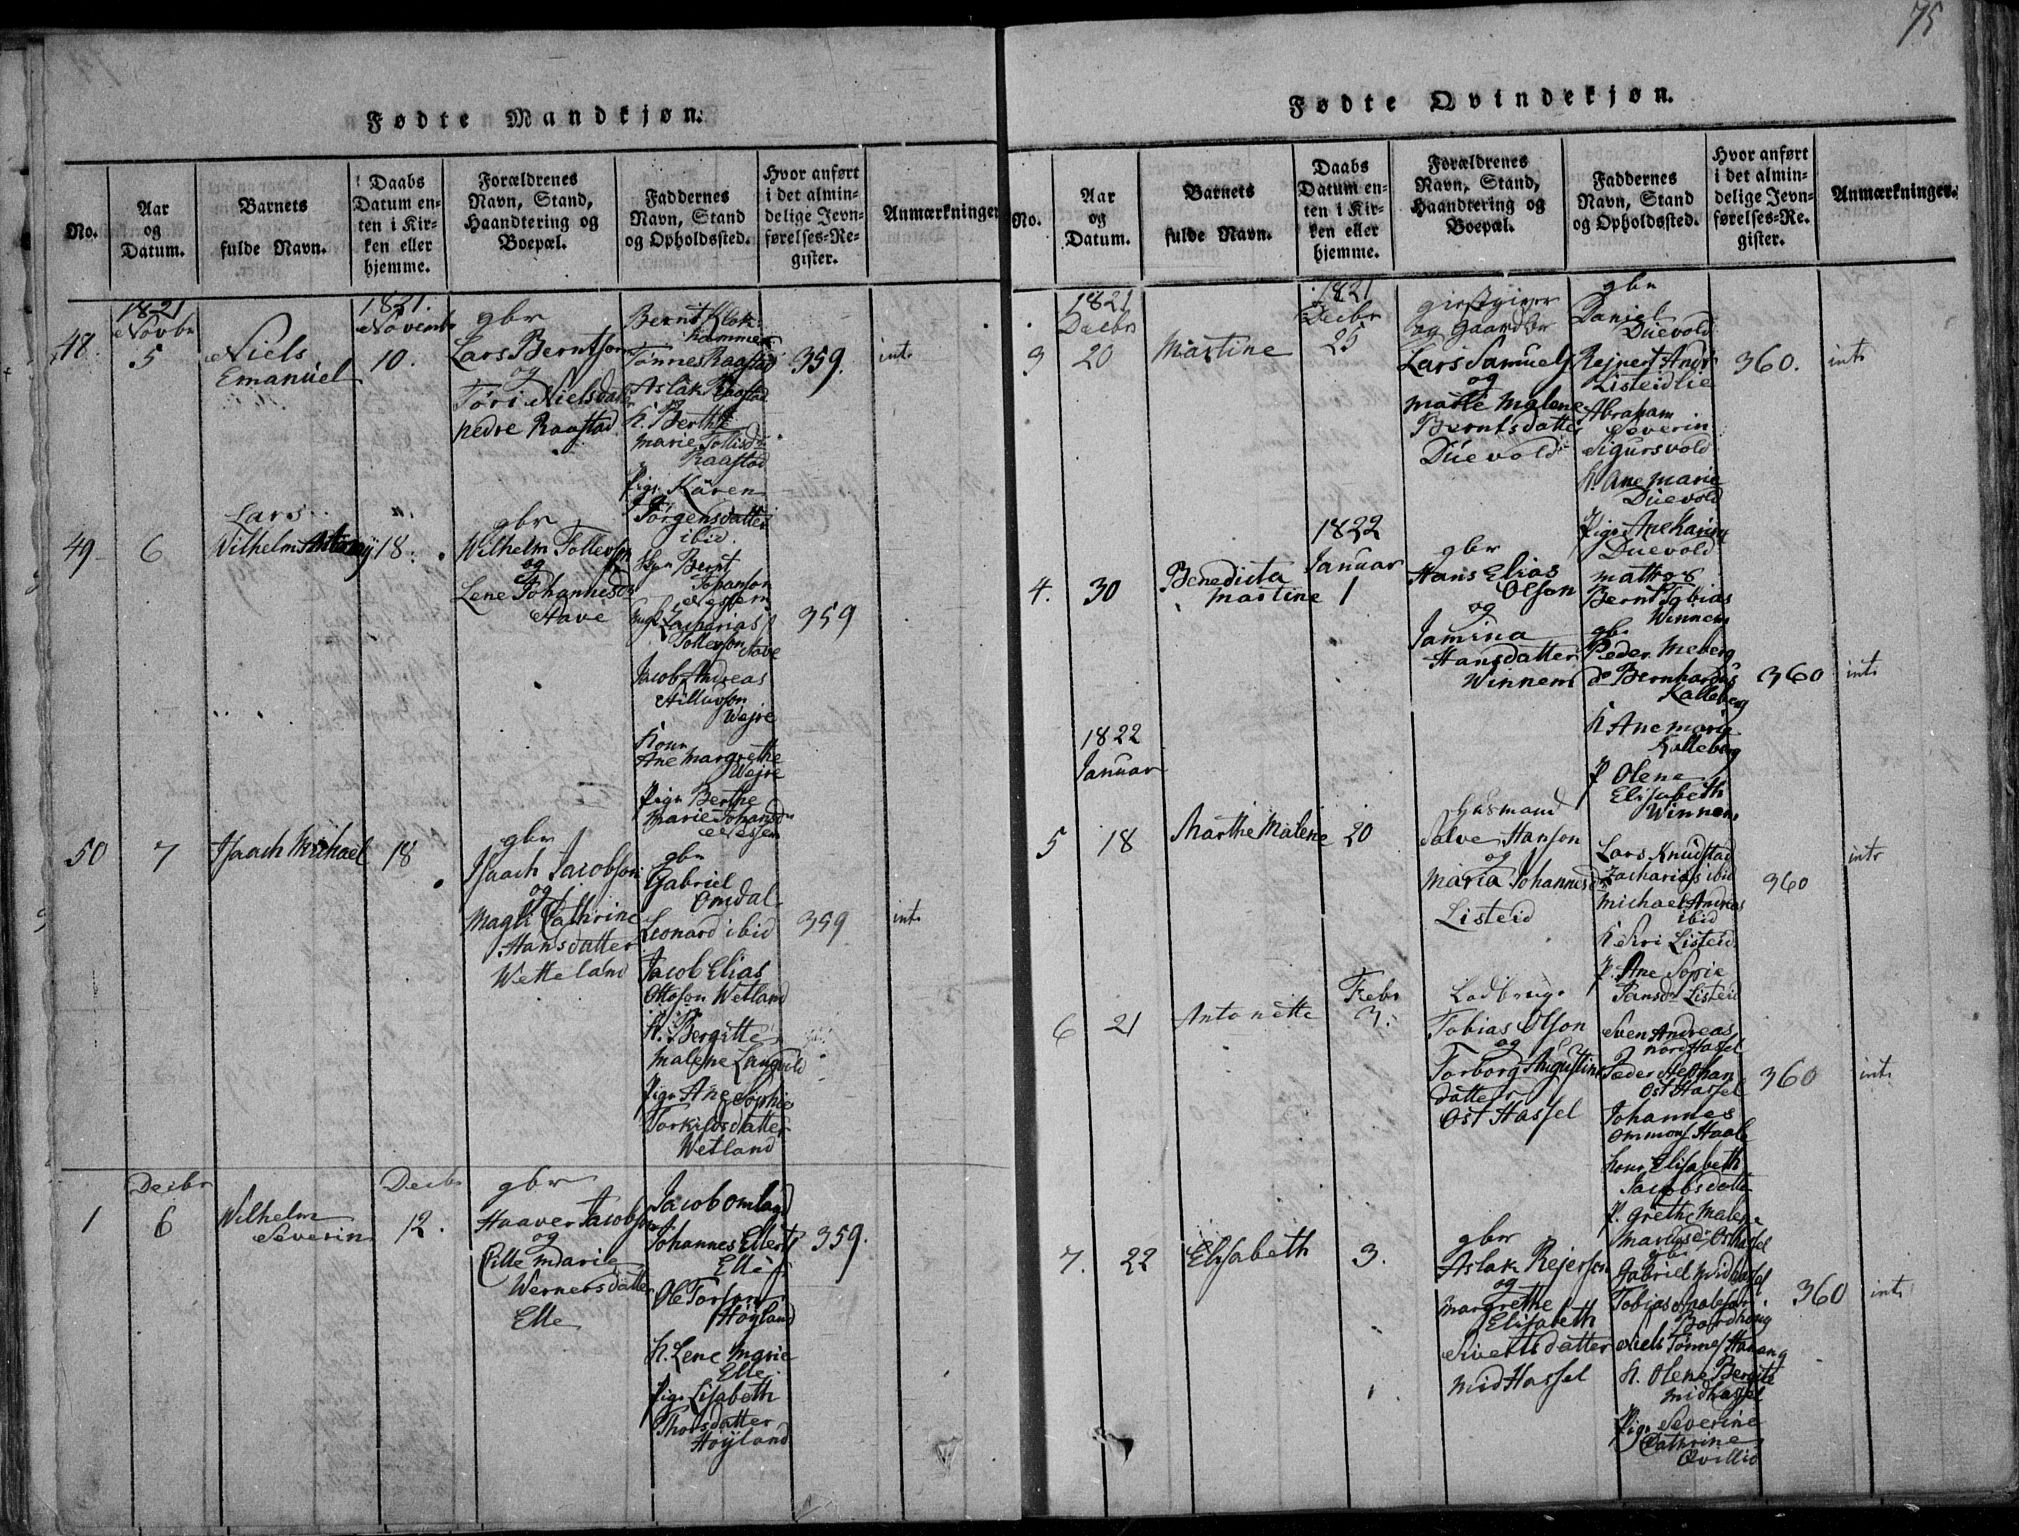 75
Fødte Mandkjøn.
No.
Aar og Datum.
Barnets fulde Navn.
Daabs Datum enten i Kirken eller hjemme.
Forældrenes Navn, Stand, Haandtering og Boepæl.
Faddernes Navn, Stand og Opholdssted.
Hvor anført i det almindelige Jevnførelses-Register.
Anmærkninger
48.
1821
Novbr
5
Niels
Emanuel
1821.
Novembr
10.
gbr
Lars Berntson
og
Tøri Nielsdatter
nedre Raastad
Bernt Klok-
hammer
Tønnes Raastad
Aslak Raastad
K. Berthe
Marie Tollisdr
Raastad
Pige Karen
Jørgensdatter
ibid.
359.
int
49
6
Lars
Wilhelm
18.
gbr
Wilhelm Tollevson
og
Lene Johannesdr
Have
Bernt
Johanson
Zacharias
Tollevson Have
Jacob Andreas
Wejre
Kone
Ane Margrethe
Wejre
Pige Berthe
Marie Johansdr
359
50
7
Isaach Michael
18
gbr
Isaach Jacobson
og
Magli Cathrine
Hansdatter
Wetteland
gbr
Gabriel
Omdal
Leonard ibid
Jacob Elias
Ottoson Wetland
K. Bergitte
Malene Langvold
Pige Ane Sophie
Torkildsdatter
Wetland
359
int
1
Decbr
6
Wilhelm
Severin
Decbr
12.
gbr
Haaver Jacobson
og
Cille Marie
Wernersdatter
Elle
Jacob Omland
Johannes Ellert
Elle
Ole Torson
Høyland
K. Lene Marie
Elle
Pige Lisabeth
Thorsdatter
Høyland
359.
Fødte Qvindekjøn.
No.
Aar og Datum.
Barnets fulde Navn.
Daabs Datum enten i Kirken eller hjemme.
Forældrenes Navn, Stand, Haandtering og Boepæl.
Faddernes Navn, Stand og Opholdssted.
Hvor anført i det almindelige Jevnførelses-Register.
Anmærkninger.
3
1821
Decbr
20
Martine
1821
Decbr
25
giestgiver
og Gaardbr
Lars Samuels
og
Marte Malene
Berntsdatter
Duevold
gbr
Daniel
Duevold
Rejnert Andr
Listeidlie
Abraham
Severin
Sigursvold
K. Ane Marie
Duevold
Pige Ane Karine
Duevold
360.
int
4.
30
Benedicta
Martine
1822
Januar
1
gbr
Hans Elias
Olson
og
Jamina
Hansdatter
Winnem
Matros
Bernt Tobias
Winnem
gbr
Peder Meberg
do Bernhardus
Kalleberg
K Ane Marie
Kalleberg
P Olene
Elisabeth
Winnem
360
int
5
1822
Januar
18
Marthe Malene
20
Huusmand
Salve Hanson
og
Maria Johannesdr
Listeid
Lars Knudstad
Zacharias ibid
Michael Andreas
ibid
K Siri Listeid
P. Ane Sopie
Listeid
360
int
6
21
Antonette
Febr
3.
Tobias Olson
og
Torborg Augustins
datter
Ost Hassel
Sven Andreas
Nord Hassel
Ost Hassel
Johannes
Ommons Haale
Kone Elisabeth
Jacobsdatter
P. Grethe Malene
360
int
7.
22
Elisabeth
3.
gbr
Aslak Rejerson
og
Margrethe
Elisabeth
Sivertsdatter
Mid Hassel
gbr
Gabriel Midhassel
Tobias
Niels Tønnes
K. Olene Bergite
Midhassel
Pige Severine
Cathrine
360
int